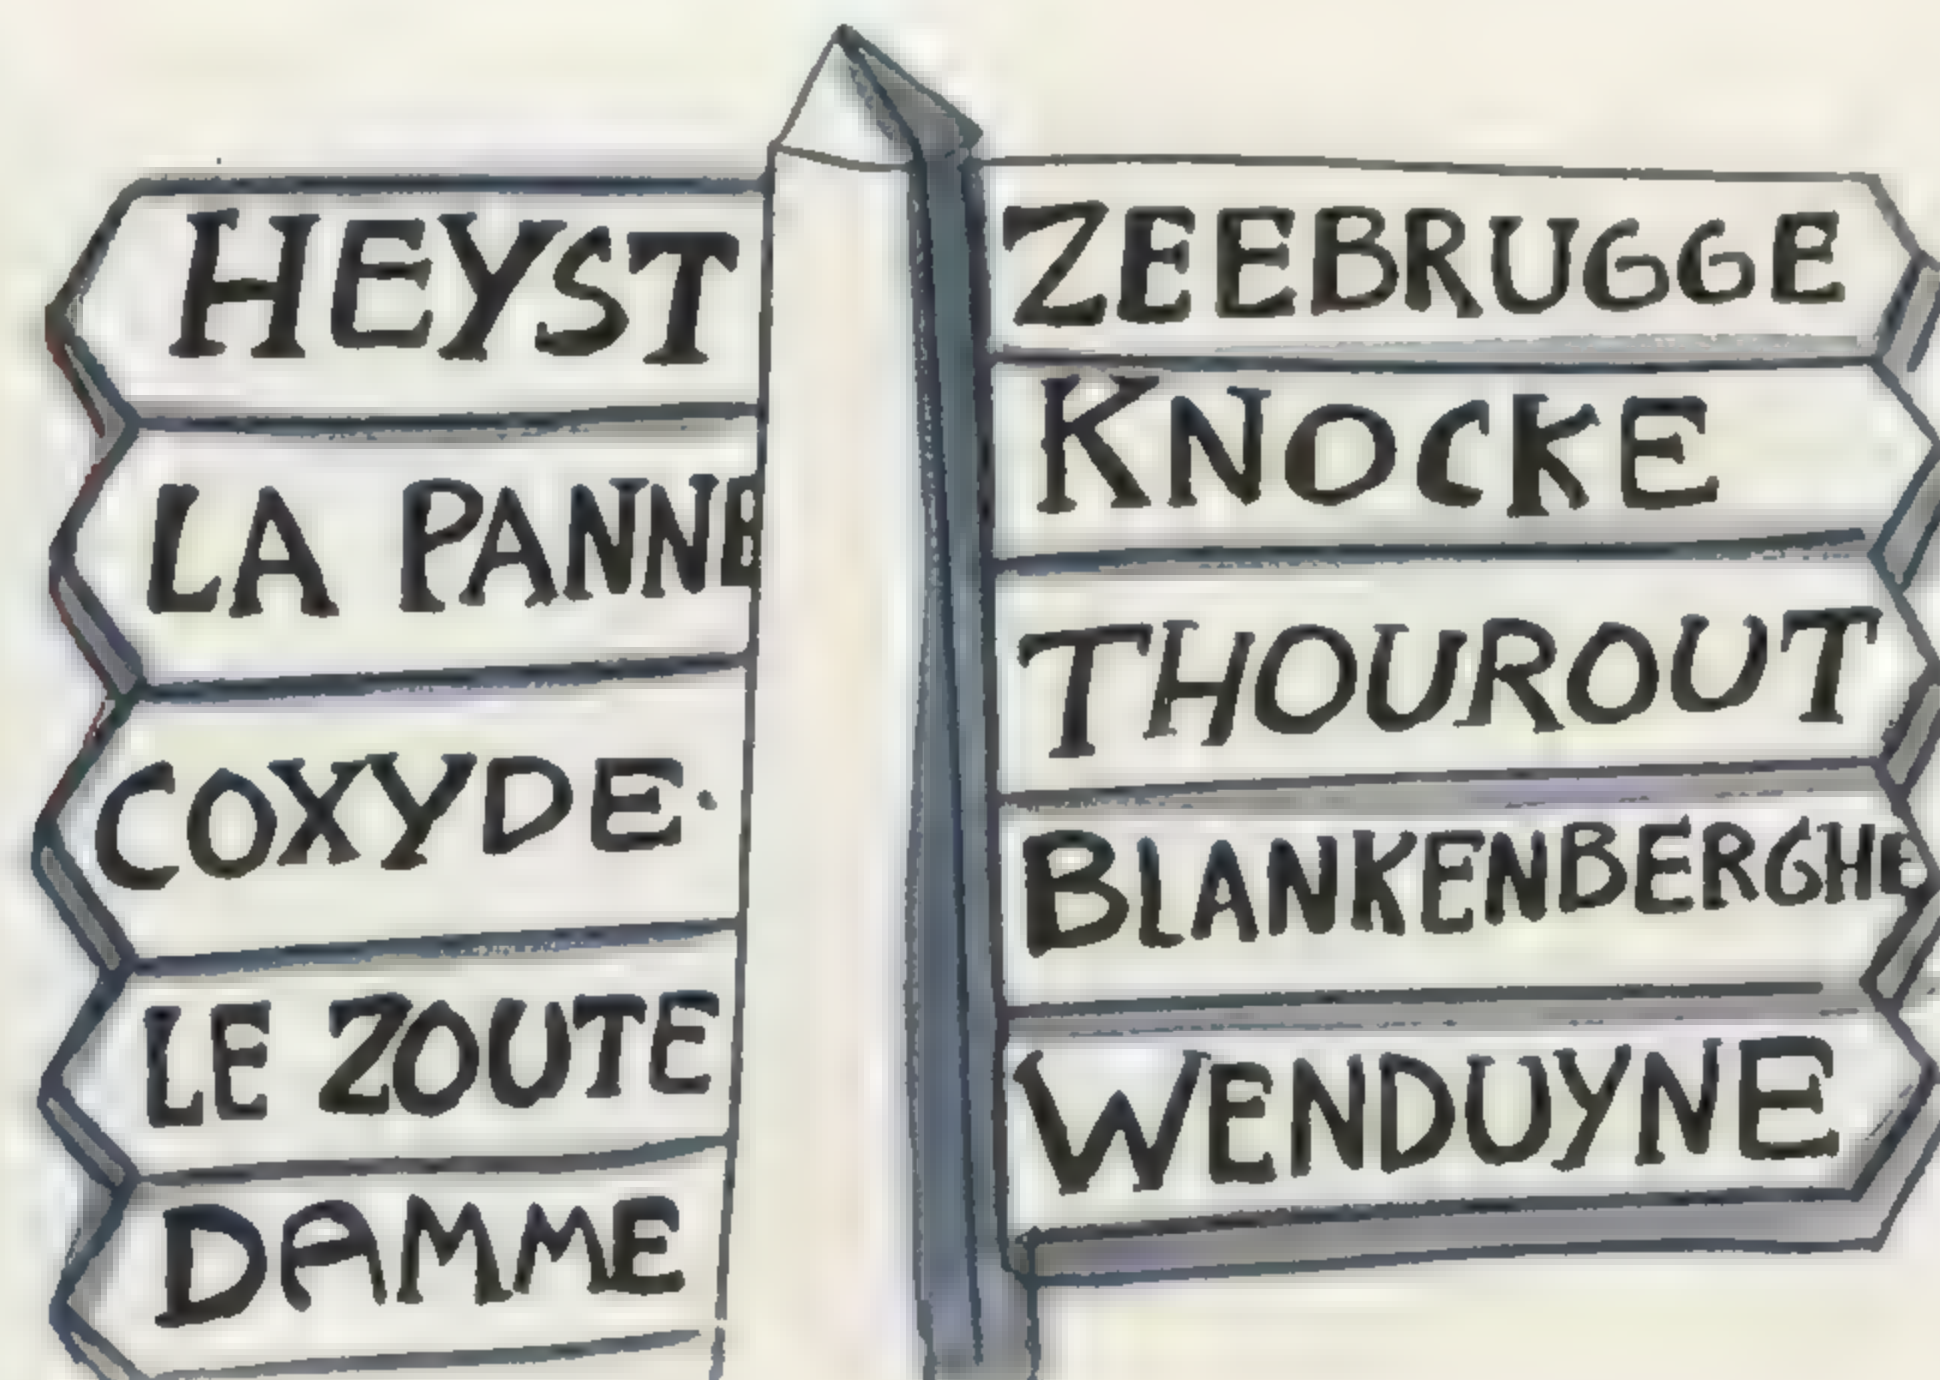 HEYST
LA PANNE
COXYDE.
LE ZOUTE
DAMME
ZEEBRUGGE
KNOCKE
THOUROUT
BLANKENBERGHE
WENDUYNE